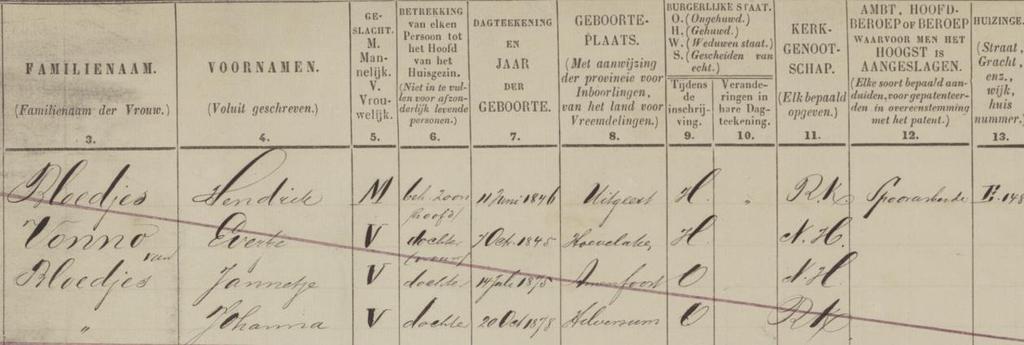 FAMILIENAAM.
(Familienaam der Vrouw.)
3.
VOORNAMEN.
(Voluit geschreven.)
4.
GE-
SLACHT.
M.
Man-
nelijk.
V.
Vrou-
welijk.
5.
BETREKKING
van elken
Persoon tot
het Hoofd
van het
Huisgezin.
(Niet in te vul-
len voor afzon-
derlijk levende
personen.)
6.
DAGTEEKENING
EN
JAAR
DER
GEBOORTE.
7.
GEBOORTE-
PLAATS.
(Met aanwijzing
der provincie voor
Inboorlingen,
van het land voor
Vreemdelingen.)
8.
BURGERLIJKE STAAT.
O. (Ongehuwd.)
H. (Gehuwd.)
W. (Weduwen staat.)
S. (Gescheiden van
echt.)
Tijdens
de
inschrij-
ving.
9.
Verande-
ringen in
hare Dag-
teekening.
10.
KERK-
GENOOT-
SCHAP.
(Elk bepaald
opgeven.)
11.
AMBT, HOOFD-
BEROEP OF BEROEP
WAARVOOR MEN HET
HOOGST IS
AANGESLAGEN.
(Elke soort bepaald aan-
duiden, voor gepatenteer-
den in overeenstemming
met het patent.)
12.
HUIZINGE.
(Straat,
Gracht,
enz.,
wijk,
huis
nummer.)
13.
Bloedjes Hendrik M beh. zoon 11 Juni 1846 Uitgeest H. „ RK E. 148
hoofd
Vonno Evertje V dochter 7 Oct. 1845 Hoevelaken H. N.H.
van
Bloedjes Jannetje V dochter 14 Juli 1875 Amersfoort O N.H.
„ Johanna V dochter 20 Oct 1878 Hilversum O RK